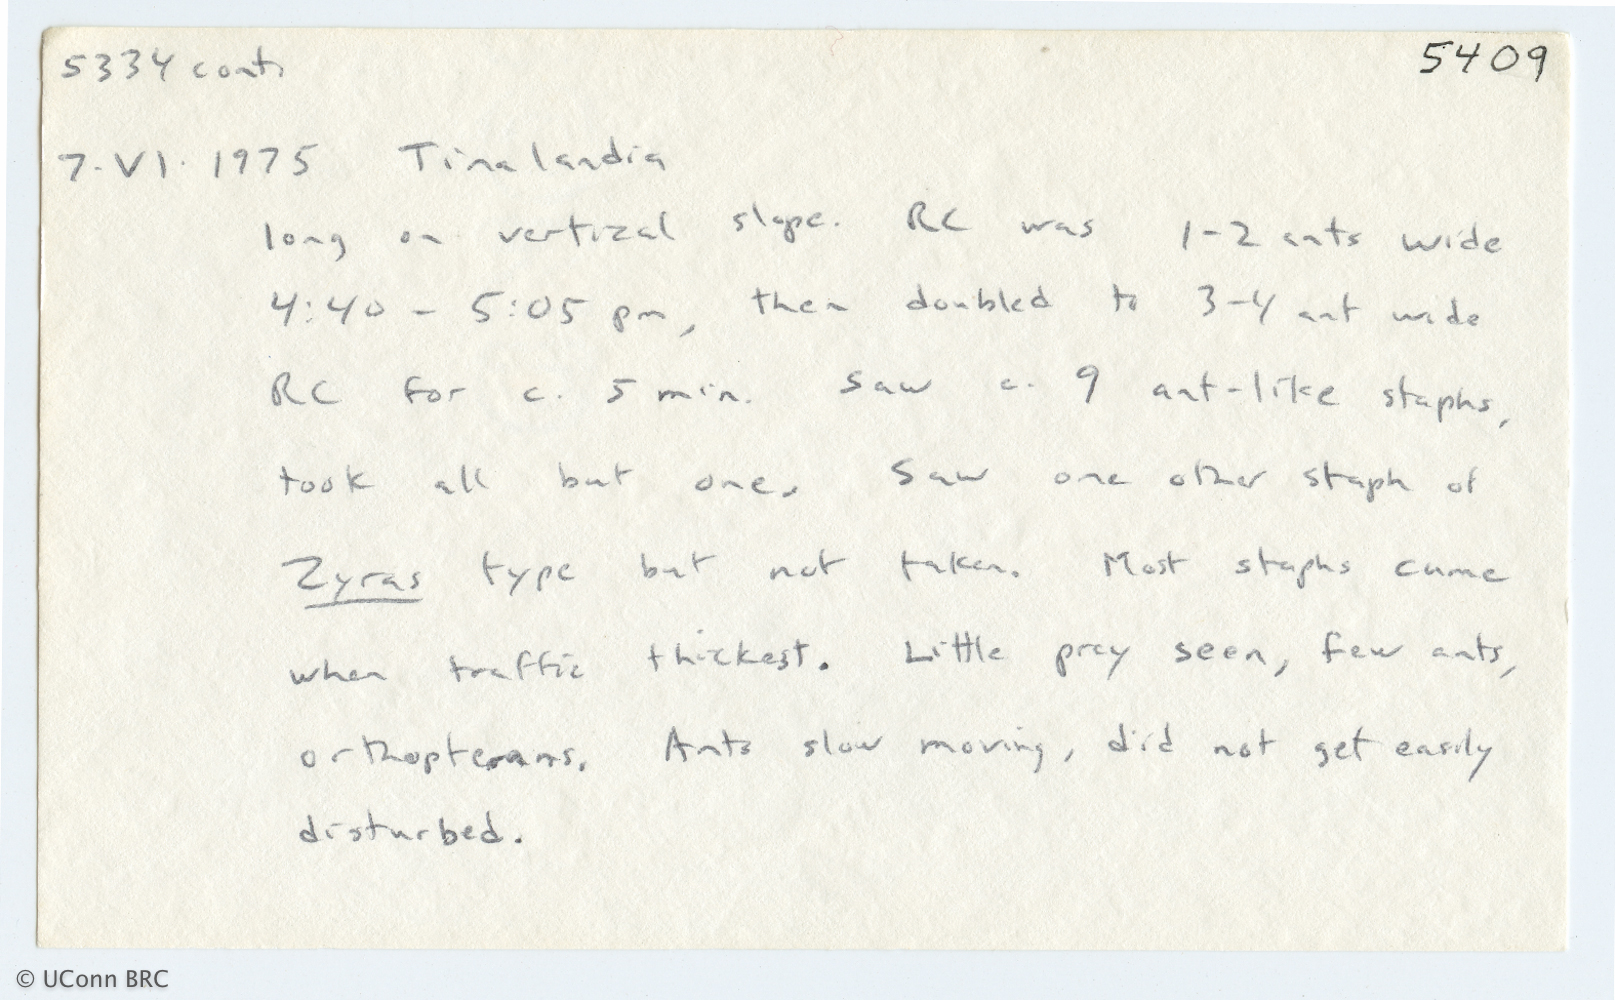 5334 cont. 5409
7.VI.1975 Tinalandia
long on vertical slope. RC was 1-2 ants wide
4:40 - 5:05 pm, then doubled to 3-4 ant wide
RC for c. 5 min. Saw c. 9 ant-like staphs,
took all but one. Saw one other staph of
Zyras type but not taken. Most staphs came
when traffic thickest. Little prey seen, few ants,
orthopterans. Ants slow moving, did not get easily
disturbed.
© UConn BRC